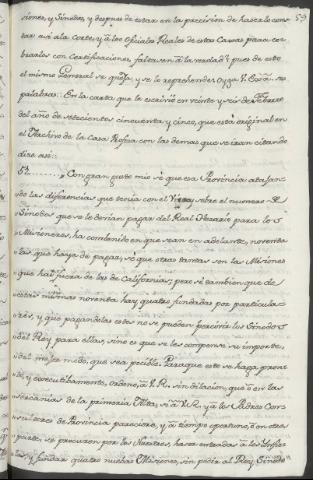 59
siones, y Sinodos, y despues de estar en la precision de hacerlo cons-
tar asi a la Corte, y à los Oficiales Reales de estas Caxas para co-
brarlos con Certificaciones, faltasen à la verdad? pues de esto
el mismo General se quexa, y se lo reprehende: Oyga V. sus
palabras. En la carta que le escrivió en veinte y seis de Febrero
del año de setecientos cincuenta y cinco, que está original en
el Archivo de la Casa Profesa con las demas que se iran citando
dice asi:
57. Con gran gusto mio vè que esa Provincia atajan-
do las diferencias que tenia con el Virrey sobre el numero de
Sinodos que se le devian pagar del Real Herario para los
Misioneros, ha combenido en que sean en adelante, noventa
los que haya de pagar; sè que otras tantas son las Misiones
que hai fuera de las de Californias; pero sè tambien que de
estas mismas noventa hay quatro fundadas por particula-
res, y que pagandolas estas no se pueden percivir los Sinodos
del Rey, para ellas, sino es que se les compense su importe,
del mejor modo, que sea pocible. Para que esto se haga, pron-
ta, y executibamente, ordeno, à V. R. sin dilacion, que ò en las
cercanias de la primeria Alta, si à V. R. y a los Padres Con-
sultores de Provincia pareciere, y à tiempo oportuno, ò en otra
parte, se procuren por los Nuestros, hacer entradas à los Infie-
les, y fundar quatro nuebas Misiones, sin pedir al Rey Sinodo